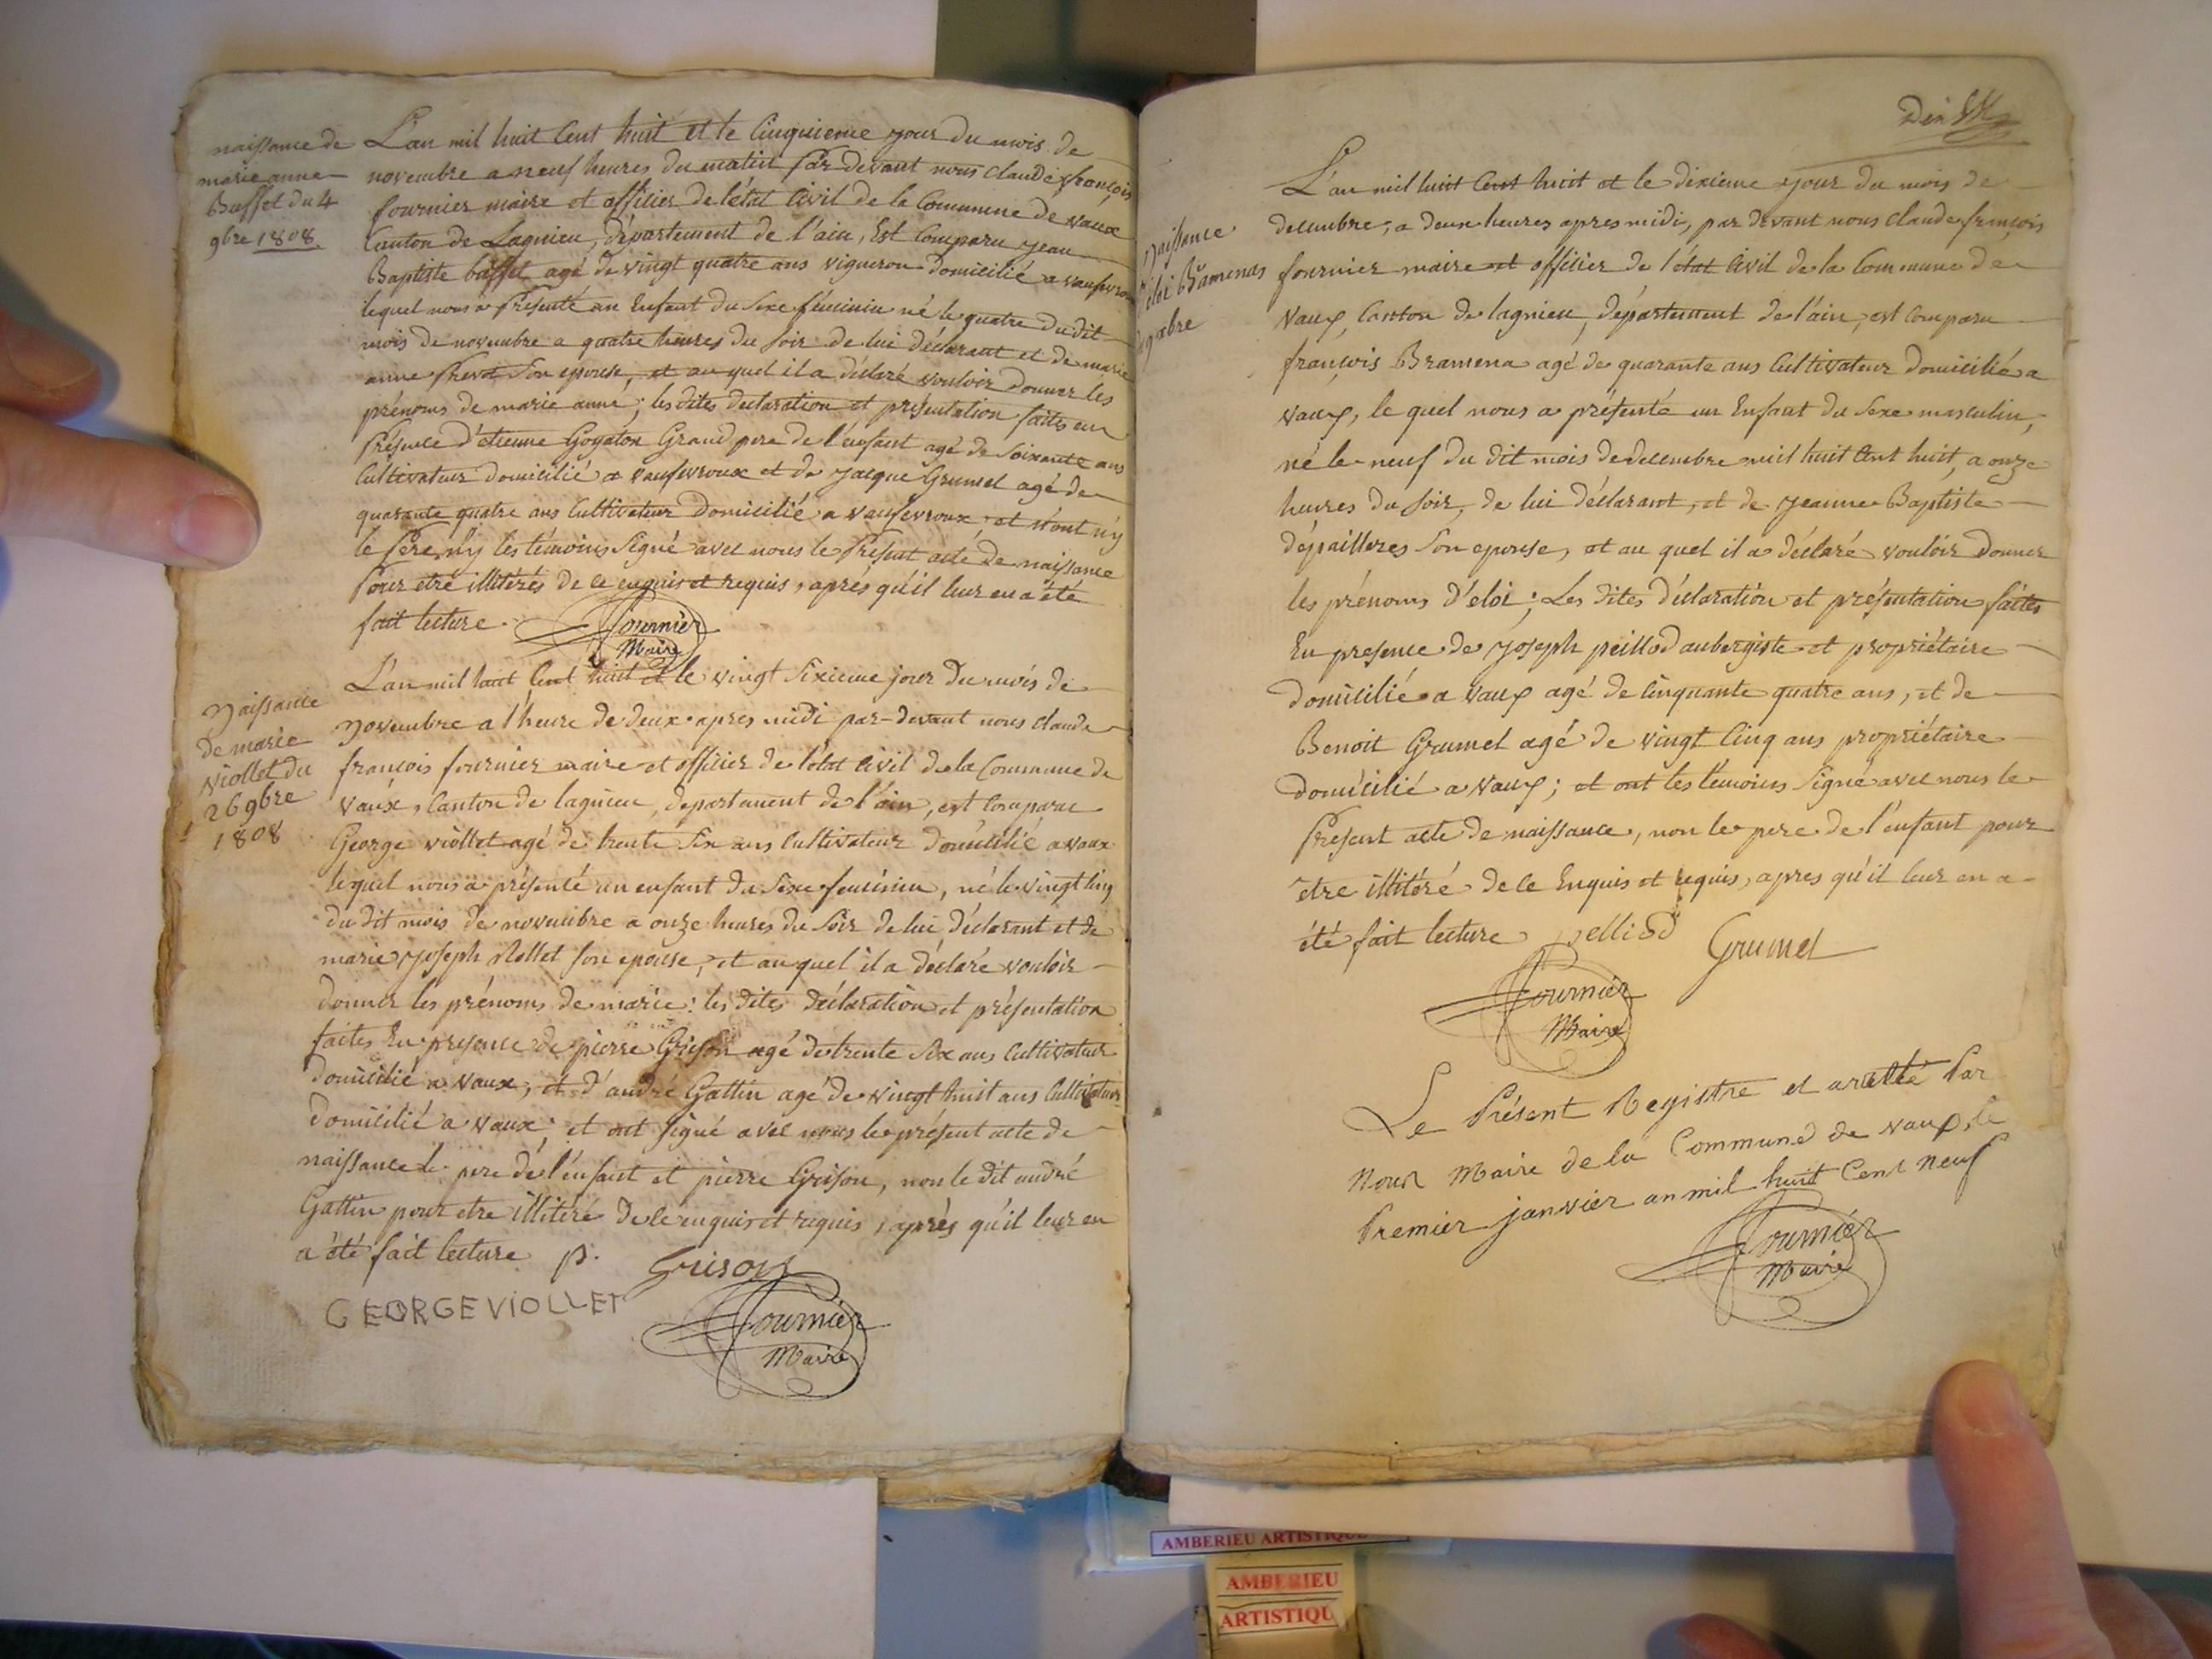 naissance de
marie anne
Buffet du 4
9bre 1808.
L'an mil huit Cent huit et le Cinquieme jour du mois de
novembre a neuf heures du matin Par devant nous claude françois
fournier maire et officier de l'état Civil de la Commune de vaux
Canton de Lagnieu, département de l'ain, Est Comparu jean
Baptiste buffet agé de vingt quatre ans vigneron domicilié a
lequel nous a Présenté un Enfant du Sexe féminin né le quatre du dit
mois de novembre a quatre heures du soir de lui déclarant et de marie
anne Prevot Son epouse, et au quel il a déclaré vouloir donner les
prénoms de marie anne; les dites declaration et présentation faites en
Présence d'etienne Goyaton Grand pere de l'enfant agé de Soixante ans
Cultivateur domicilié a vaufevroux et de jacque Grumel agé de
quarante quatre ans Cultivateur domicilié a vaufevroux, et n'ont n'y
le Pere, n'y les témoins Signé avec nous le Présent acte de naissance
Pour etre illitérés de ce enquis et requis, aprés qu'il leur en a été
fait lecture.
Fournier
Maire
Naissance
de marie
viollet du
26 9bre
1808
L'an mil huit Cent huit et le vingt Sixieme jour du mois de
Novembre a l'heure de deux apres midi par-devant nous claude
françois fournier maire et officier de l'état Civil de la Commune de
vaux, Canton de lagnieu, departement de l'ain, est Comparu
George viollet agé de trente Six ans Cultivateur domicilié a vaux
lequel nous a présenté un enfant du Sexe feminin, né le vingt Cinq
du dit mois de novembre a onze heures du Soir de lui déclarant et de
marie Joseph Rollet son epouse, et au quel il a déclaré vouloir
donner les prénoms de marie: les dites déclaration et présentation
faites En presence de pierre Grison agé de trente Six ans Cultivateur
domicilié a vaux, et d'andré Gattin agé de vingt huit ans Cultivateur
domicilié a vaux; et ont signé avec nous le présent acte de
naissance le pere de l'enfant et pierre Grison, non le dit andré
Gattin pour etre illitéré de ce enquis et requis, aprés qu'il leur en
a été fait lecture p. Grison
GEORGE VIOLLET
Fournier
Maire
Naissance
éloi Bramenas
L'an mil huit Cent huit et le dixieme jour du mois de
decembre, a deux heures apres midi, par devant nous claude françois
fournier maire et officier de l'état Civil de la Commune de
vaux, Canton de lagnieu, département de l'ain, est Comparu
françois Bramena agé de quarante ans Cultivateur domicilié a
vaux, le quel nous a présenté un Enfant du Sexe masculin,
né le neuf du dit mois de decembre mil huit Cent huit, a onze
heures du Soir, de lui déclarant, et de jeanne Baptiste
dépailleres Son epouse, et au quel il a déclaré vouloir donner
les prénoms d'eloi; Les dites déclaration et présentation faites
En presence de joseph peillod aubergiste et propriétaire
domicilié a vaux agé de Cinquante quatre ans, et de
Benoit Grumel agé de vingt Cinq ans propriétaire
domicilié a vaux; et ont les témoins Signé avec nous le
Présent acte de naissance, non le pere de l'enfant pour
etre illitéré de ce Enquis et requis, apres qu'il leur en a
été fait lecture pelliod Grumel
Fournier
Maire
Le Présent Registre et aretté Par
Nous Maire de la Commune de vaux, le
Premier janvier an mil huit Cent neuf
Fournier
Maire
AMBERIEU ARTISTIQUE
AMBERIEU
ARTISTIQU